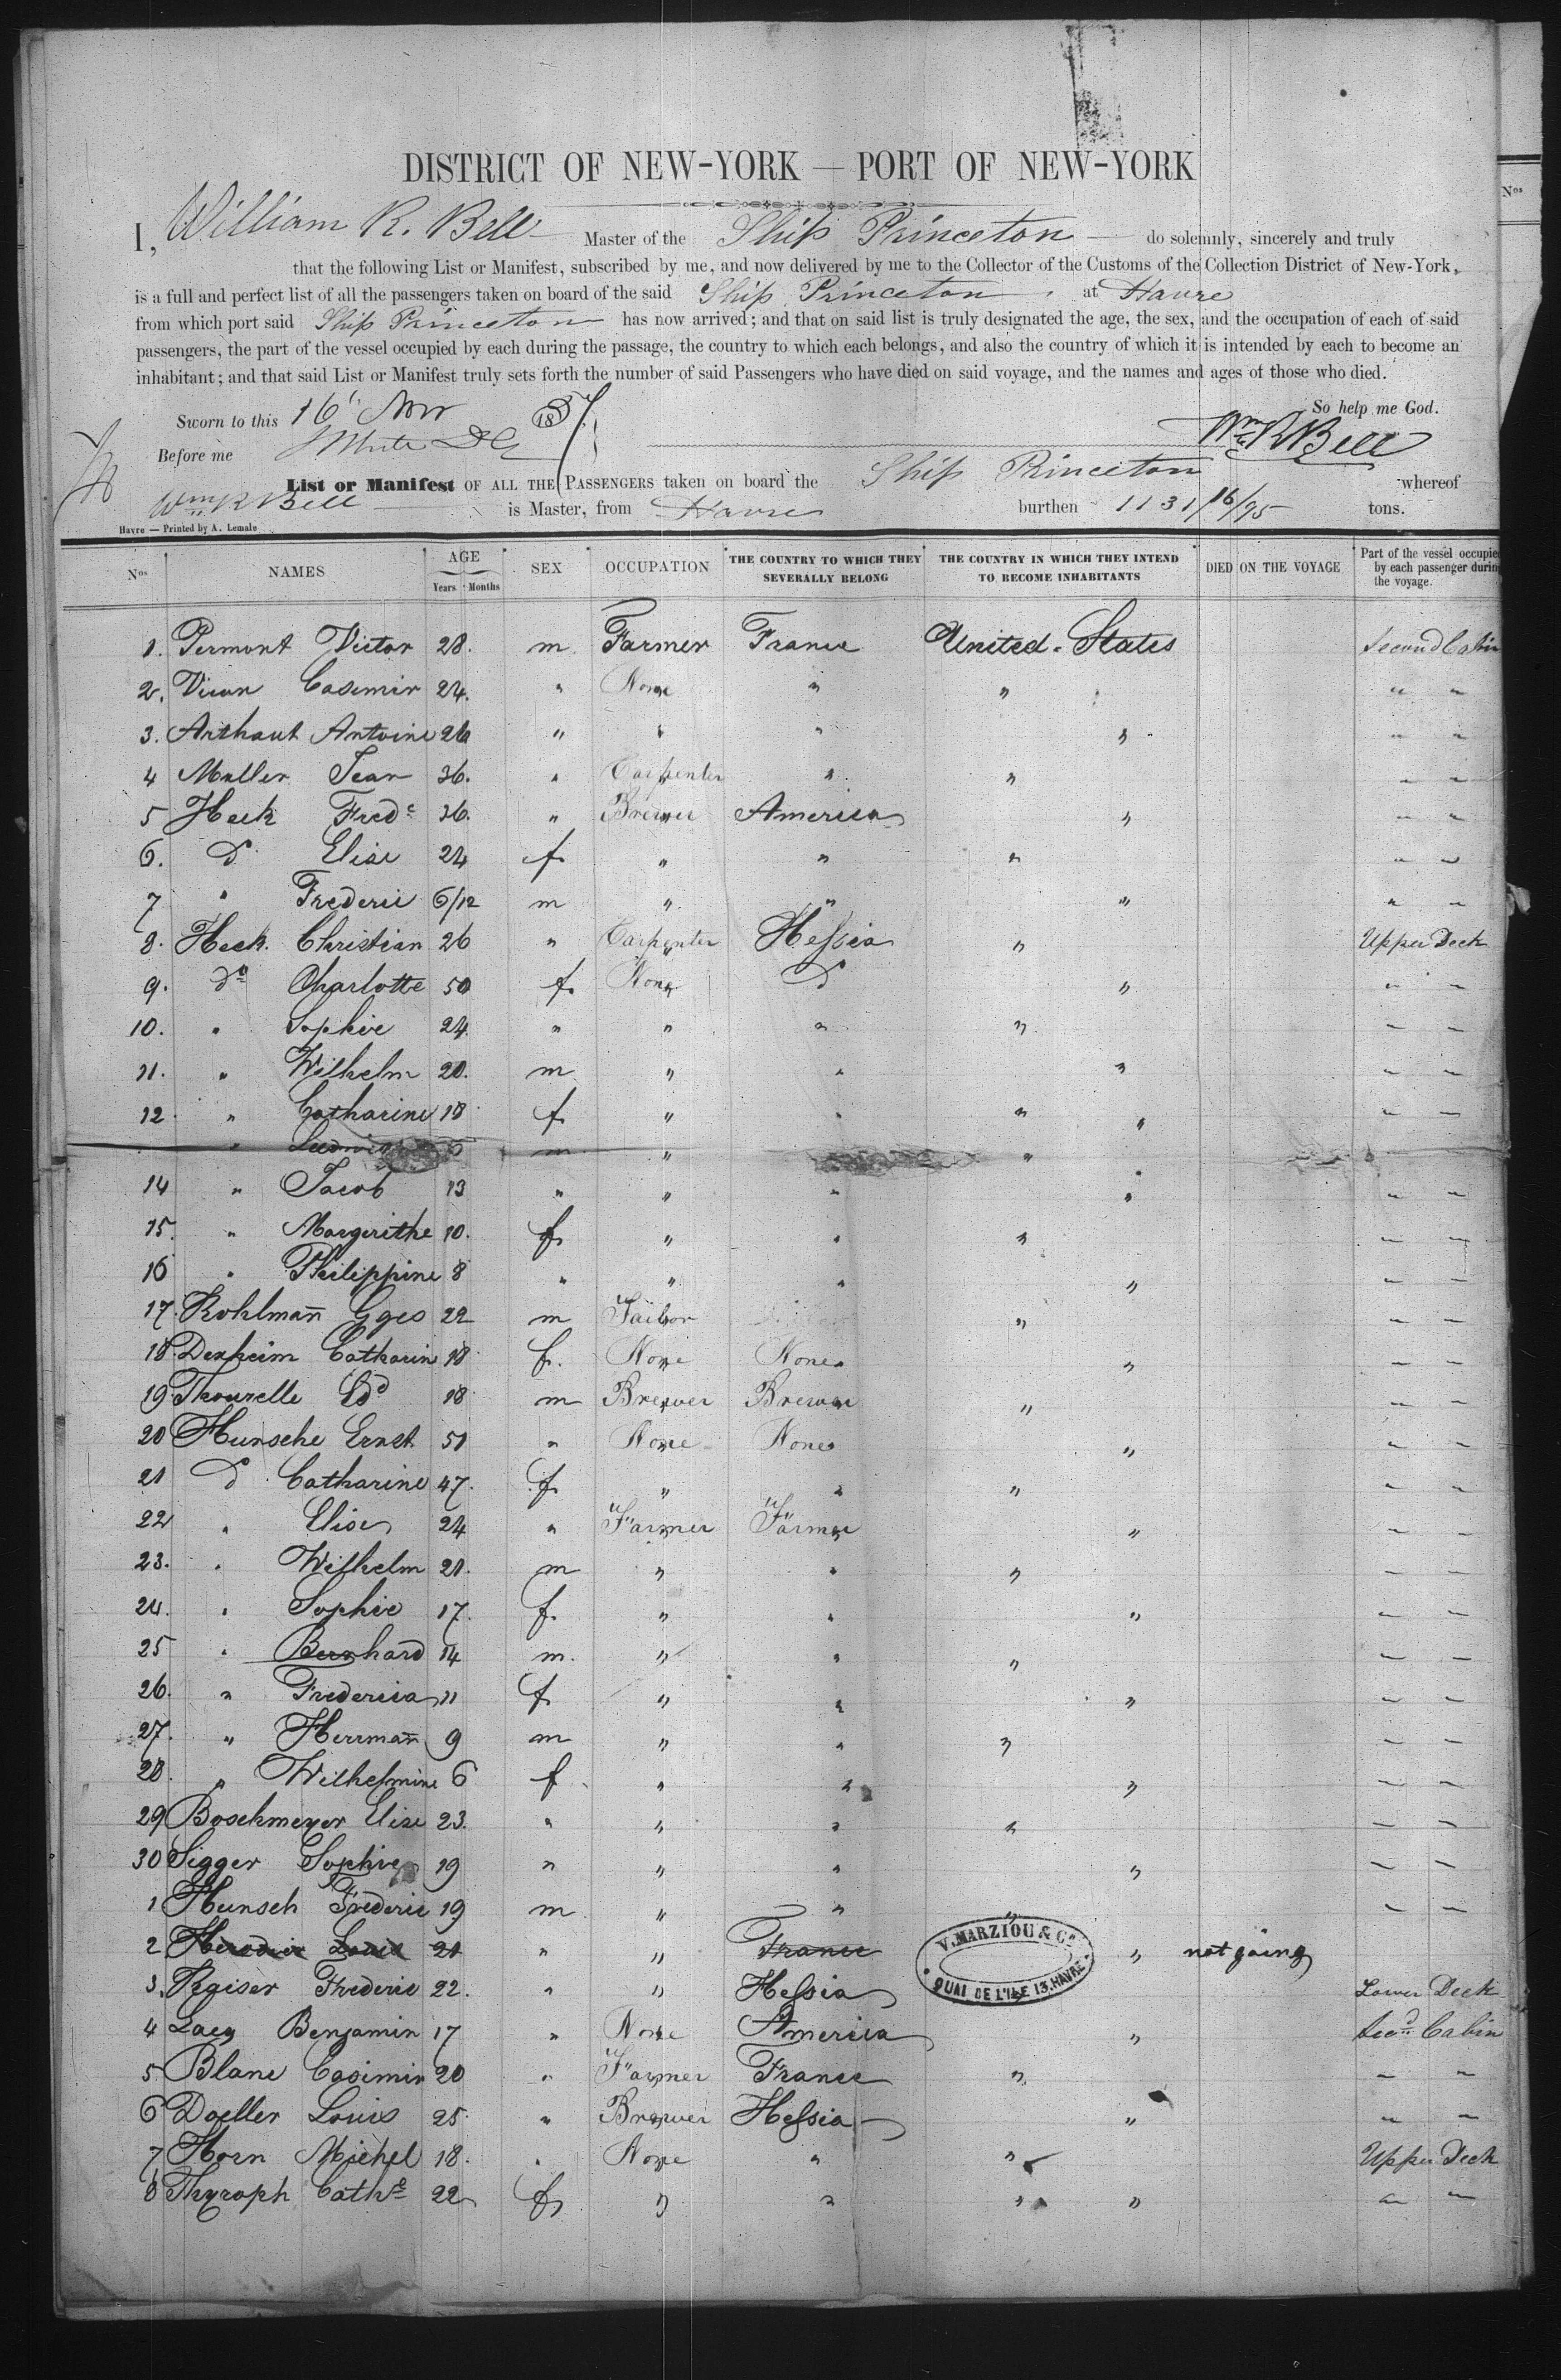 Nos
DISTRICT OF NEW-YORK — PORT OF NEW-YORK
I, William R. Bell Master of the Ship Princeton do solemnly, sincerely and truly
that the following List or Manifest, subscribed by me, and now delivered by me to the Collector of the Customs of the Collection District of New-York,
is a full and perfect list of all the passengers taken on board of the said Ship Princeton at Havre
from which port said Ship Princeton has now arrived; and that on said list is truly designated the age, the sex, and the occupation of each of said
passengers, the part of the vessel occupied by each during the passage, the country to which each belongs, and also the country of which it is intended by each to become an
inhabitant; and that said List or Manifest truly sets forth the number of said Passengers who have died on said voyage, and the names and ages of those who died.
So help me God.
Sworn to this 16 Nov 1857
Wm R Bell
Before me
List or Manifest OF ALL THE PASSENGERS taken on board the Ship Princeton whereof
Wm R Bell is Master, from Havre burthen 1131 16/95 tons.
Havre — Printed by A. Lemale
Nos NAMES AGE Years Months SEX OCCUPATION THE COUNTRY TO WHICH THEY SEVERALLY BELONG THE COUNTRY IN WHICH THEY INTEND TO BECOME INHABITANTS DIED ON THE VOYAGE Part of the vessel occupied by each passenger during the voyage.
1. Permont Victor 28. m Farmer France United-States Second Cabin
2. Casimir 24. " None " " " "
3. Arthaut Antoine 26 " " " " " "
4 Muller Jean 36. " Carpenter " " " "
5 Heck Fredc 36. " Brewer America " " "
6. do Elise 24 f " " " " "
7 " Frederic 6/12 m " " " " "
8. Heck Christian 26 " Carpenter Hessia " Upper Deck
9. do Charlotte 50 f. None do " " "
10. " Sophie 24 " " " " " "
11. " Wilhelm 20. m " " " " "
12. " Catharine 18 f " " " " "
" Ludwig m " "
14 " Jacob 13 " " " " " "
15. " Margerithe 10. f " " " " "
16 " Philippine 8 " " " " " "
17. Kohlmann Gges 22 m Tailor " " "
18. Dexheim Catharin 18 f. None None " " "
19 Thourelle Edd 18 m Brewer Brewer " " "
20 Hunsche Ernst 51 " None None " " "
21 do Catharine 47. f " " " " "
22 " Elise 24 " Farmer Farmer " " "
23. " Wilhelm 21. m " " " " "
24. " Sophie 17. f. " " " " "
25 " Bernhard 14 m. " " " " "
26. " Frederica 11 f " " " " "
27. " Herrmann 9 m " " " " "
28 " Wilhelmine 6 f " " " " "
29 Boschmeyer Elise 23. " " " " " "
30 Sigger Sophie 19 " " " " " "
1 Hunsch Frederic 19 m " " " " "
2 Louis 21 " " France " not going
3. Kaiser Frederic 22. " " Hessia Lower Deck
V. MARZIOU & Ce QUAI DE L'ILE 13. HAVRE
4 Lacy Benjamin 17 " None America " Secd Cabin
5 Blanc Casimir 20 " Farmer France " " "
6 Doeller Louis 25. " Brewer Hessia " " "
7 Horn Michel 18. " None " " Upper Deck
8 Cathe 22 f " " " " " "